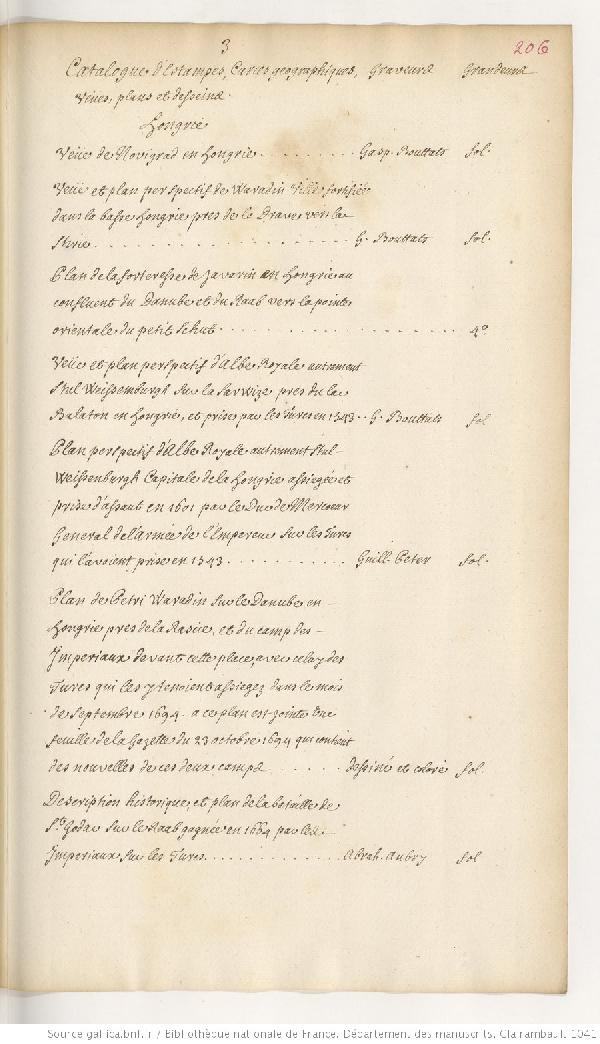 3 206
Catalogue d'Estampes, Cartes geographiques, Graveurs Grandeurs
Veües, plans et desseins.
Hongrie
Veüe de Novigrad en Hongrie . . . . . . . . Gasp. Bouttats fol.
Veüe et plan perspectif de Waradin Ville fortifiée
dans la basse Hongrie pres de le Drave vers la
Stirie . . . . . . . . . . . . . . . . . . . . G. Bouttats fol.
Plan de la forteresse de Javarin en Hongrie au
confluent du Danube et du Raab vers la pointe
orientale du petit Schut . . . . . . . . . . . . . . . . . . 4°
Veüe et plan perspectif d'Albe Royale autrement
Stul Weissemburgh sur la Sarwize pres du lac
Balaton en Hongrie, et prise par les Turcs en 1543 . . G. Bouttats fol
Plan perspectif d'Albe Royale autrement Stul-
Weissenburgh Capitale de la Hongrie assiegée et
prise d'assaut en 1601 par le Duc de Mercoeur
General de l'armée de l'Empereur sur les Turcs
qui l'avoient prise en 1543 . . . . . . . . . . Guill. Peter fol.
Plan de Petri Waradin sur le Danube en
Hongrie pres de la Rascie, et du camp des
Imperiaux devant cette place, avec celuy des
Turcs qui les y tenoient assiegez dans le mois
de Septembre 1694. a ce plan est jointe Une
feuille de la Gazette du 23 octobre 1694 qui contient
des nouvelles de ces deux camps . . . . . . dessiné et coloré fol.
Description historique, et plan de la bataille de
St. Godar sur le Raab gagnée en 1664 par les
Imperiaux sur les Turcs . . . . . . . . . . . . Abrah. Aubry fol
Source gallica.bnf.fr / Bibliothèque nationale de France. Département des manuscrits. Clairambault 1041